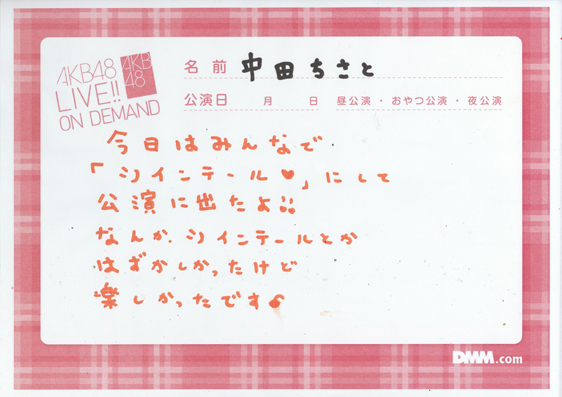 AKB48
LIVE!!
ON DEMAND
AKB
48
名前 中田ちさと
公演日 月 日 昼公演・おやつ公演・夜公演
今日はみんなで
「ツインテール♥」にして
公演に出たよ!!
なんか、ツインテールとか
はずかしかったけど
楽しかったです
DMM.com